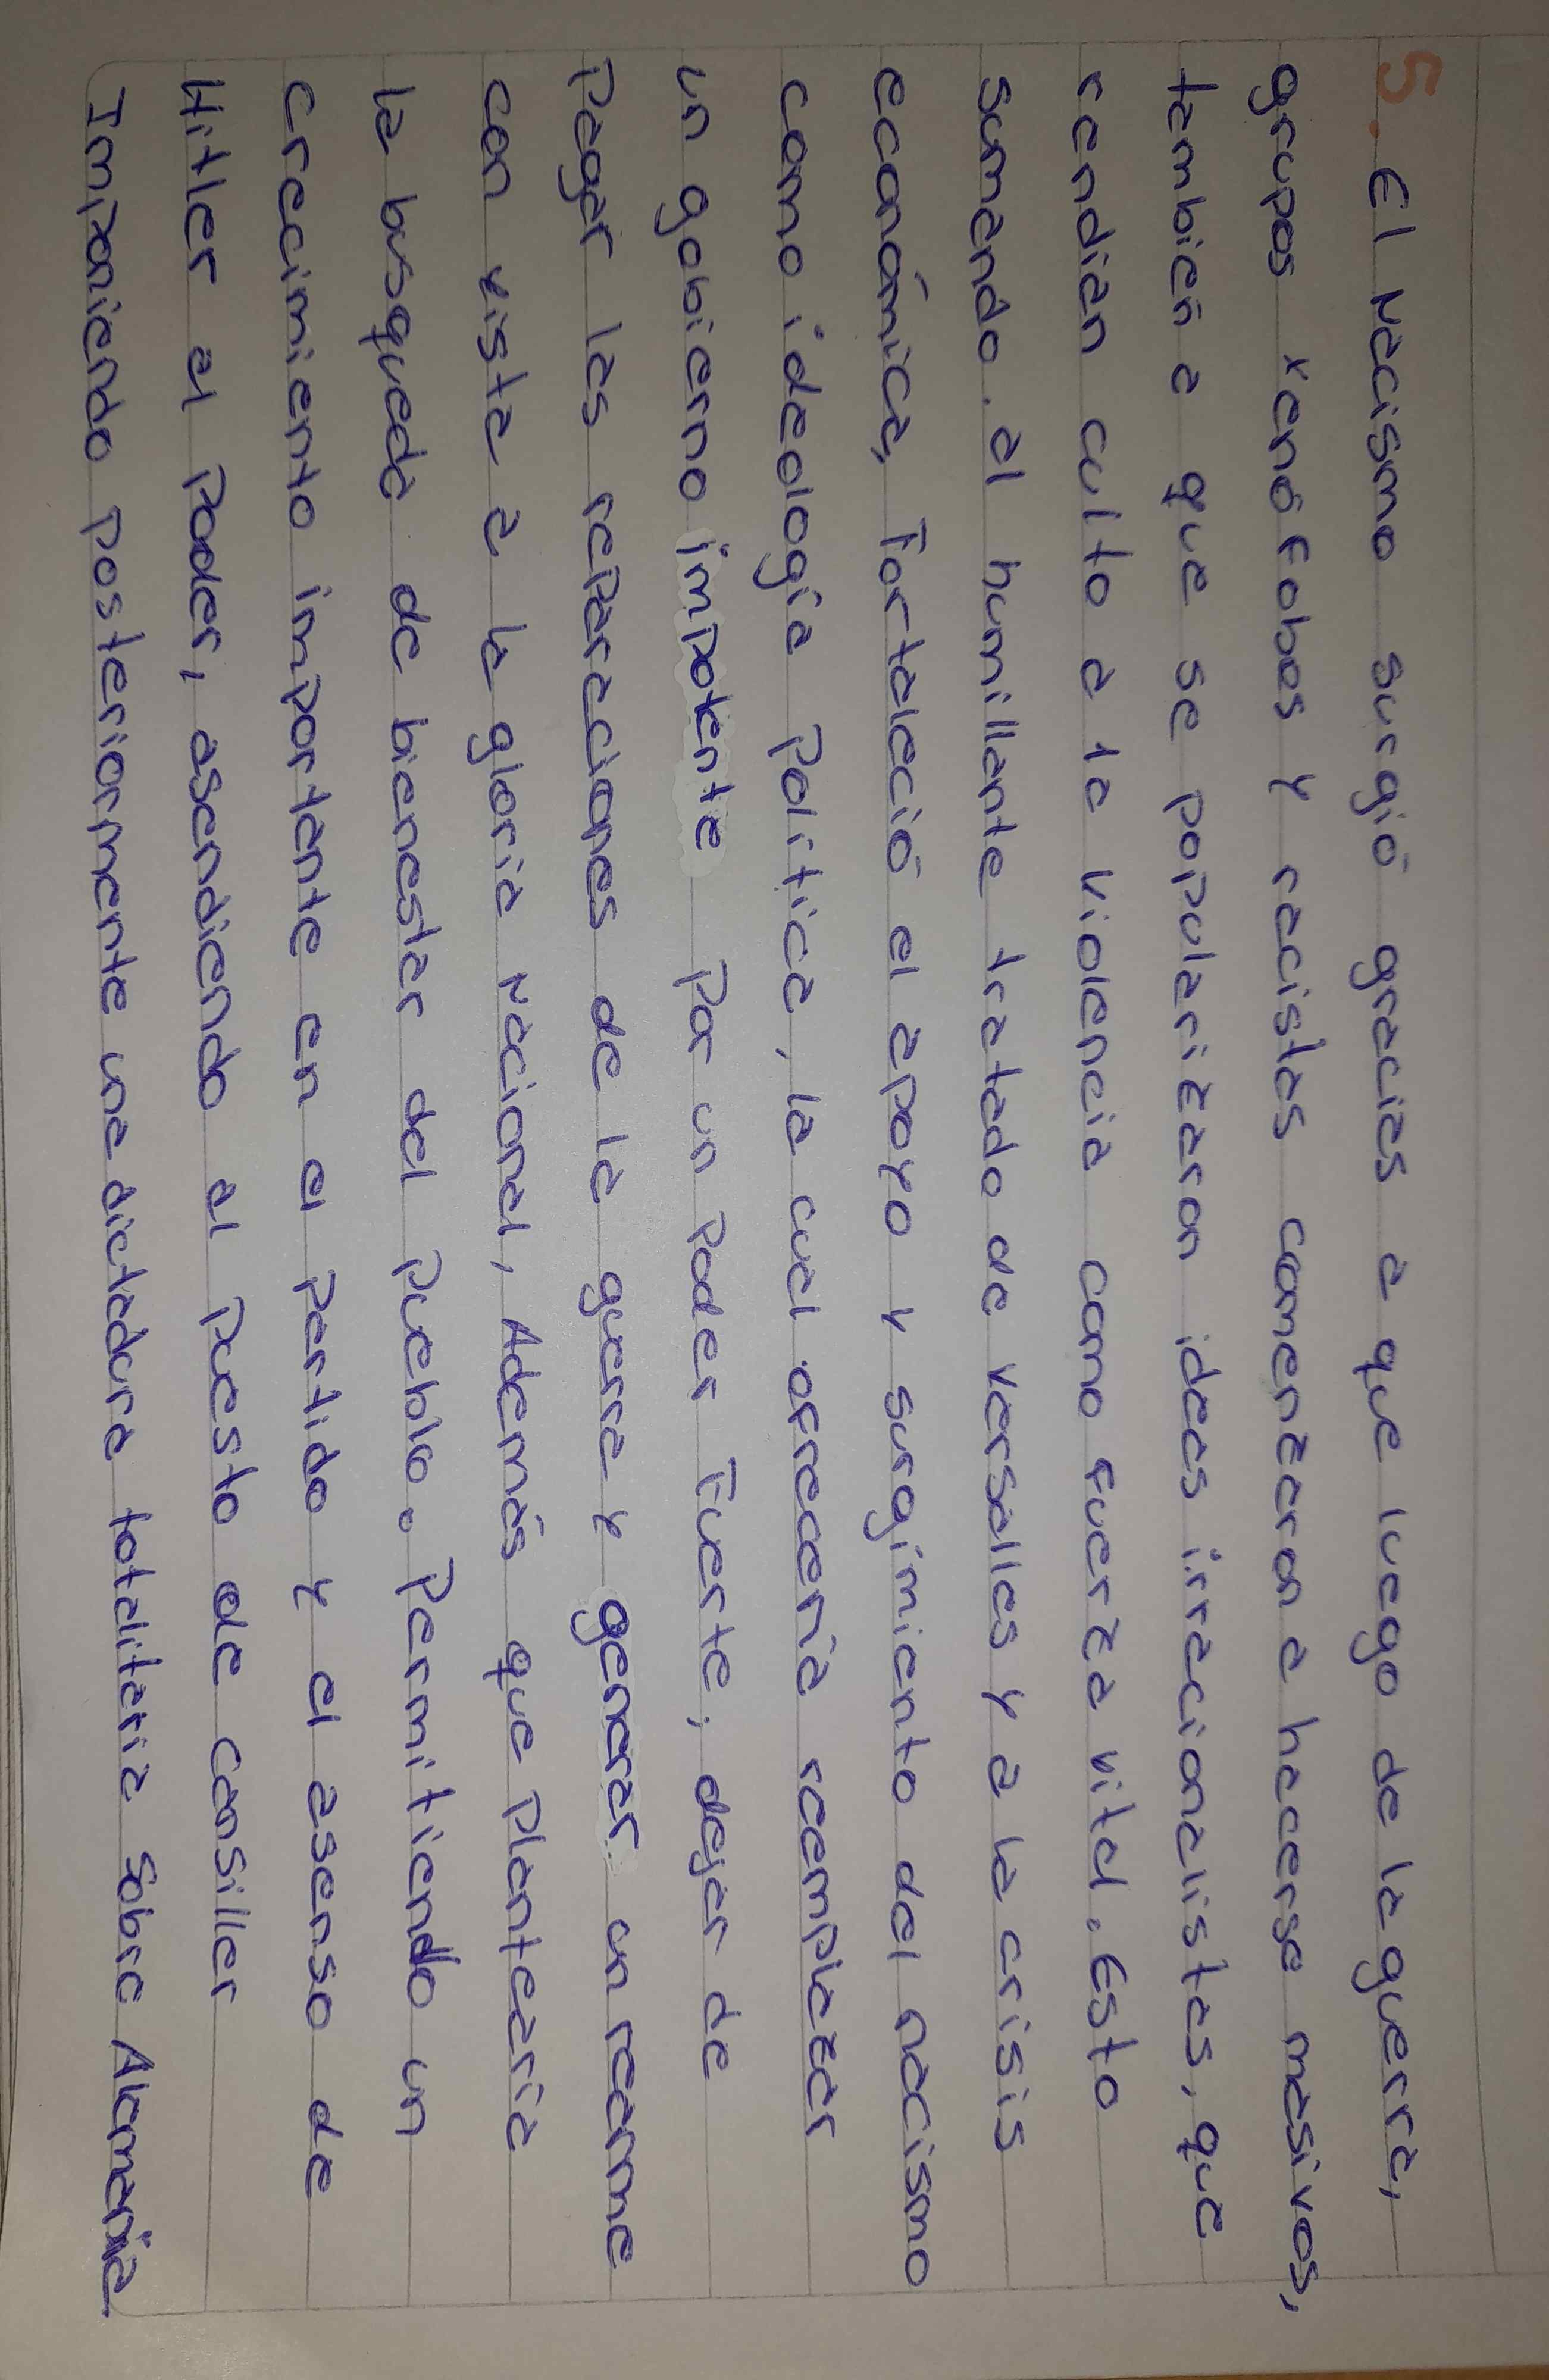 5. El Nacismo surgió gracias a que luego de la guerra,
grupos xenófobos y racistas comenzaron a hacerse masivos,
tambien a que se popularizaron ideas irracionalistas, que
rendian culto a la violencia como fuerza vital. Esto
sumando. al humillante tratado de versalles y a la crisis
económica, Fortaleció el apoyo y surgimiento del nacismo
como ideología Politica, la cual ofrecería reemplazar
un gobierno impotente Por un Poder Fuerte, dejar de
Pagar las reparaciones de la guerra y generar un rearme
con vista a la gloria Nacional, Además que Plantearía
la busqueda de bienestar del Pueblo. Permitiendo un
crecimiento importante en el Partido y el asenso de
Hitler al Poder, asendiendo al Puesto de cansiller
Imponiendo posteriormente una dictadura totalitaria sobre Alemania